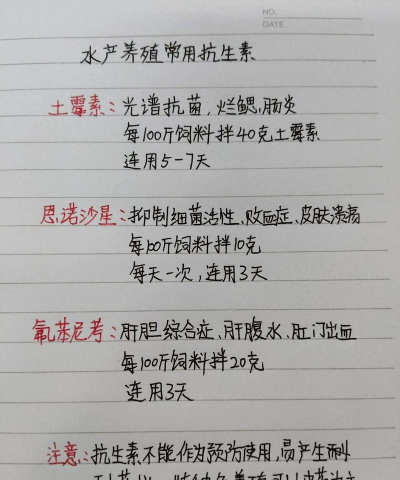 NO.
DATE
水产养殖常用抗生素
土霉素：光谱抗菌，烂鳃，肠炎
每100斤饲料拌40克土霉素
连用5-7天
恩诺沙星：抑制细菌活性、败血症、皮肤溃病
每100斤饲料拌10克
每天一次，连用3天
氟苯尼考：肝胆综合症、肝腹水、肛门出血
每100斤饲料拌20克
连用3天
注意：抗生素不能作为预防使用，易产生耐